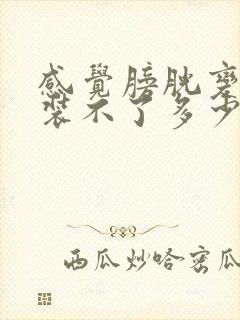 感覺膀胱變
裝不了多少
西瓜炒哈密瓜